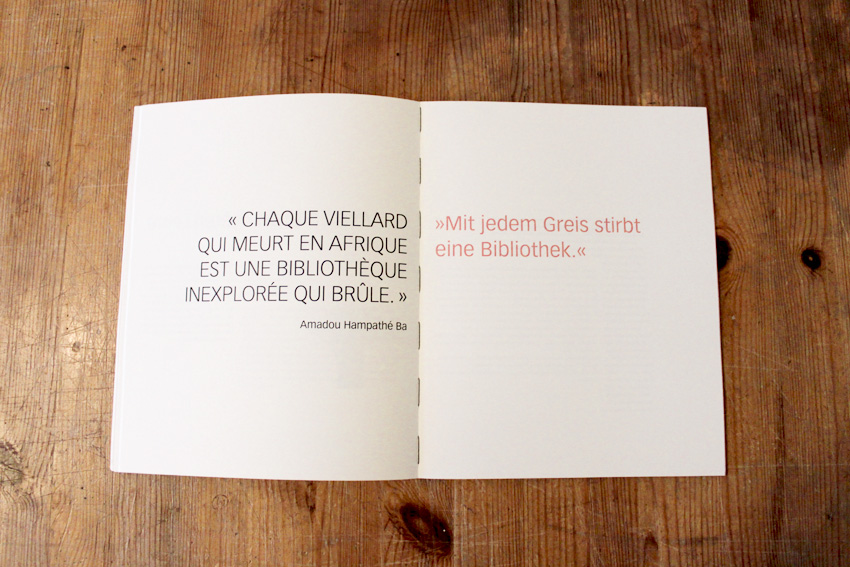 « CHAQUE VIELLARD
QUI MEURT EN AFRIQUE
EST UNE BIBLIOTHÈQUE
INEXPLORÉE QUI BRÛLE. »
Amadou Hampathé Ba
»Mit jedem Greis stirbt
eine Bibliothek.«